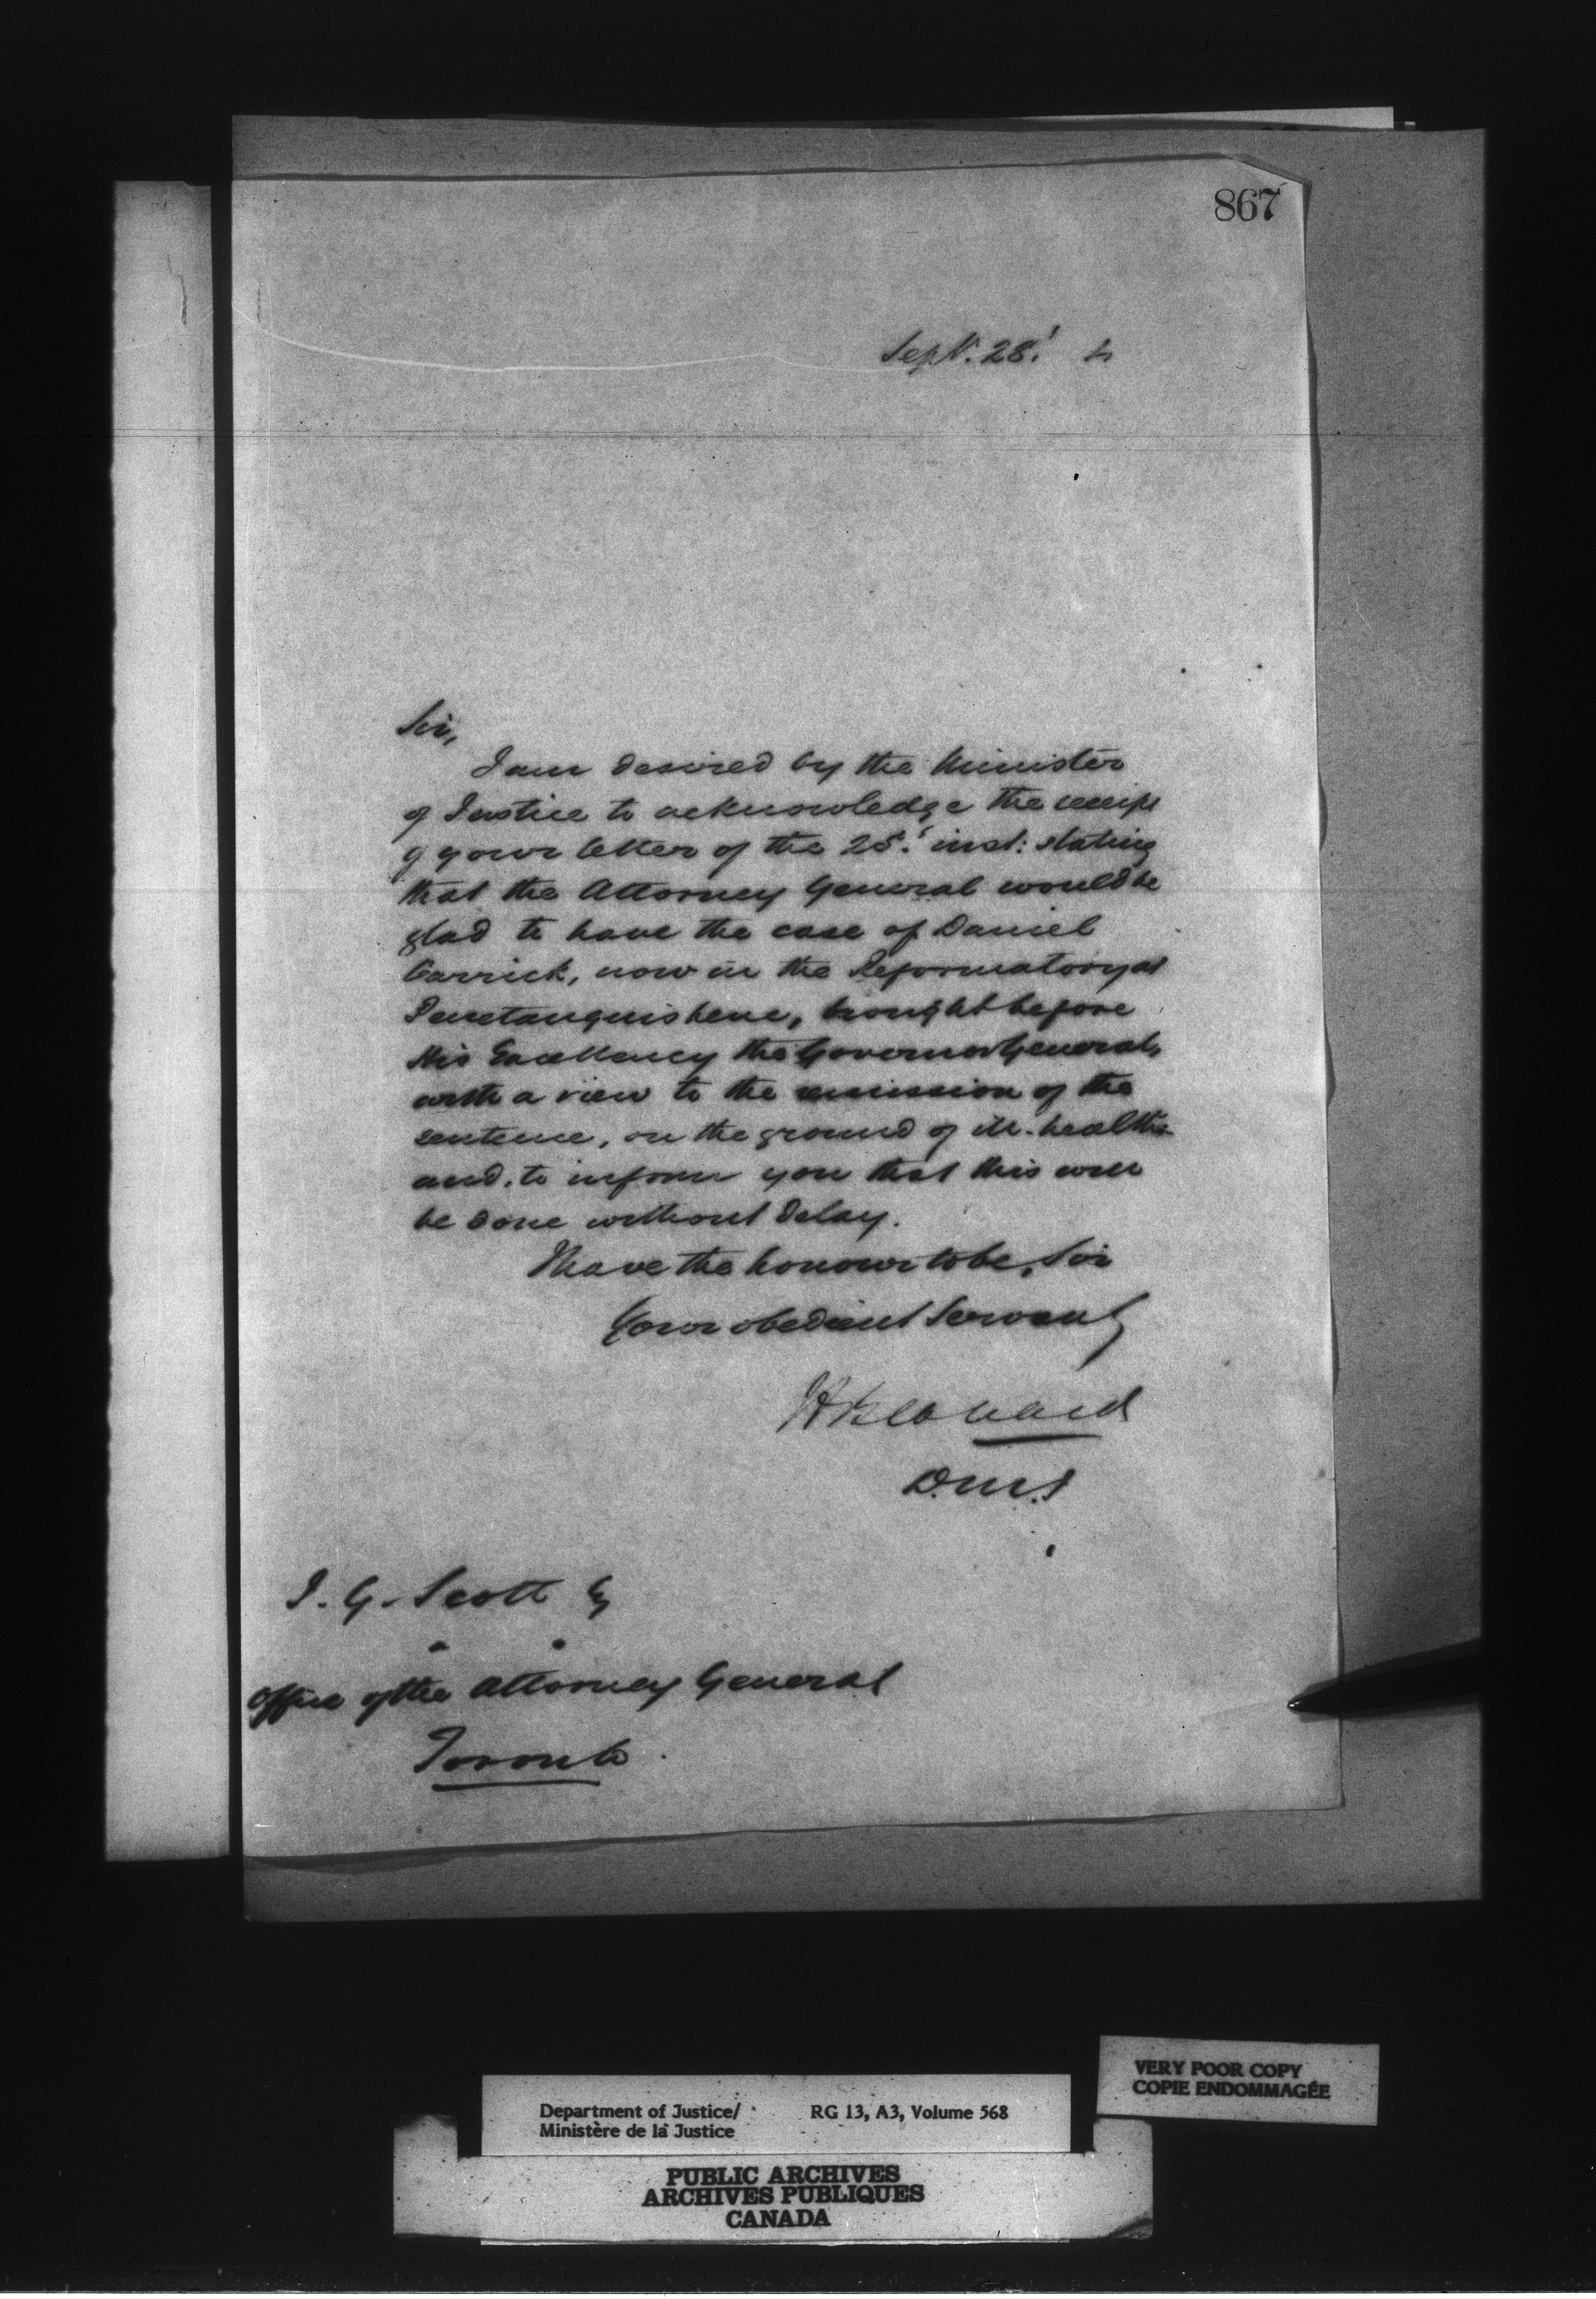 867
Sept. 28. 4
Sir,
I am desired by the Minister
of Justice to acknowledge the receipt
of your letter of the 25. inst: stating
that the Attorney General would be
glad to have the case of Daniel
Carrick, now in the Reformatory at
Penetanguishene, brought before
His Excellency the Governor General,
with a view to the remission of the
sentence, on the ground of ill-health
and, to inform you that this will
be done without delay.
I have the honour to be, Sir
Your obedient Servant
H Bernard
D.M.J
J. G. Scott Eq
Office of the Attorney General
Toronto.
VERY POOR COPY
COPIE ENDOMMAGÉE
Department of Justice/ RG 13, A3, Volume 568
Ministère de la Justice
PUBLIC ARCHIVES
ARCHIVES PUBLIQUES
CANADA